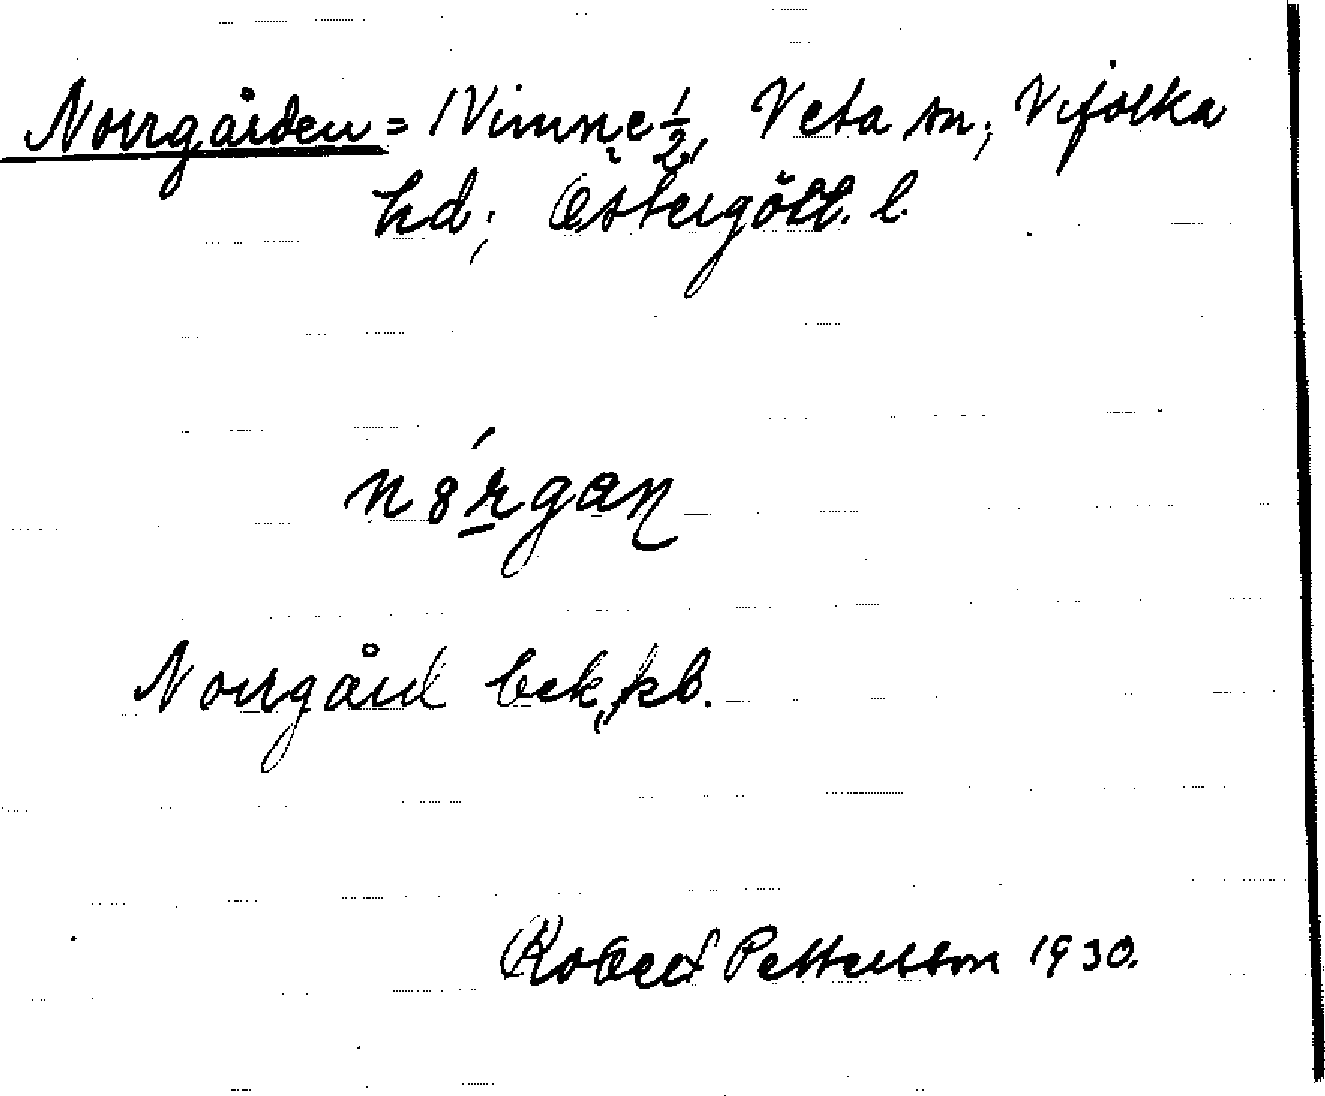 Norrgården = Vimne ½, Veta sn; Vifolka
hd; Östergötl. l.
Norrgård bek, kb.
Robert Petterson 1930.